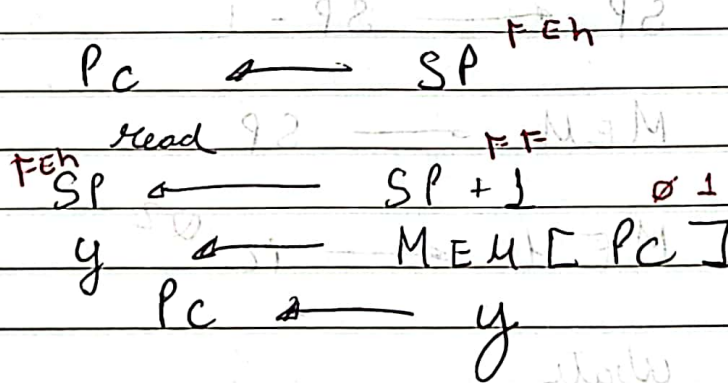 PC ← SP FEh
read
FEh SP ← SP + 1 FF ø 1
y ← MEM [ PC ]
PC ← y